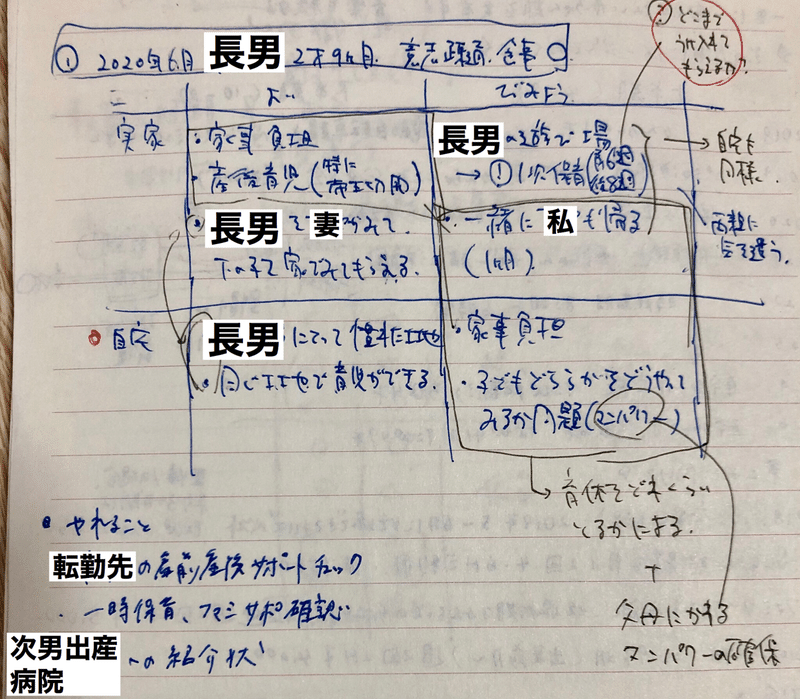 ① 2020年6月 長男 2才9ヶ月. 意志疎通. 食事 ○
② どこまで
うけ入れて
もらえるか?
よい
でみよう
実家
・家事負担
・産後育児(特に
長男の遊ぶ場
→ ① 一次保育 前6週
後8週
→ 自宅も
同様.
長男を妻がみて.
下の子を家でみてもらえる.
・一緒に 私も帰る
(1ヶ月).
両親に
気を遣う.
自宅
長男にとって慣れた土地
・同じ土地で育児ができる.
・家事負担
・子どもどちらかをどうやって
みるか問題(マンパワー)
→ 育休をどれくらい
とるかによる.
+
父母にかわる
マンパワーの確保
・やれること
転勤先の産前産後サポートチェック
・一時保育、ファミサポ確認
次男出産
病院への紹介状